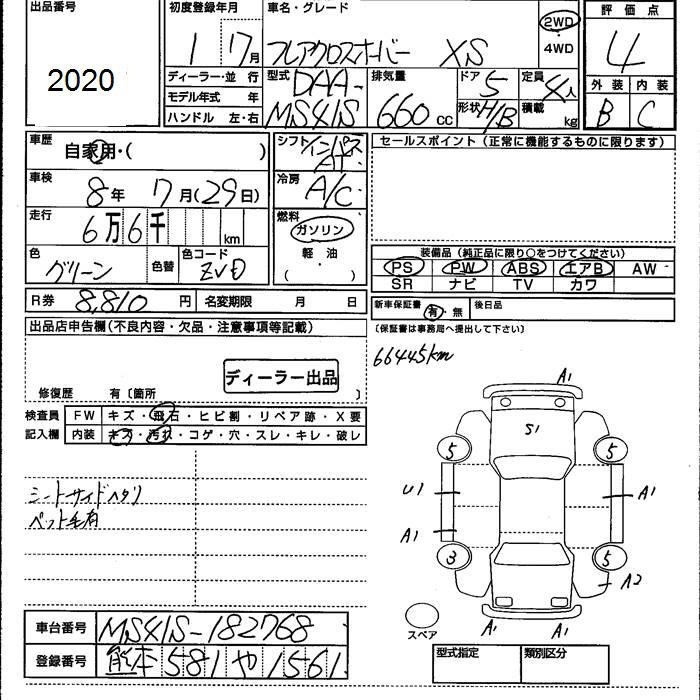 出品番号
2020
初度登録年月
1 7月
ディーラー・並 行
モデル年式 年
ハンドル 左・右
車名・グレード
フレアクロスオーバー XS
2WD
・
4WD
型式 DAA-
MS41S
排気量
660 cc
ドア 5
形状 H/B
定員 4人
積載 kg
評 価 点
4
外 装 内 装
B C
車歴
自家用・( )
車検
8年 7月(29日)
走行
6万6千 km
色
グリーン
色替
色コード
ZVD
シフト インパネ
AT
冷房
A/C
燃料
ガソリン
軽・油
( )
セールスポイント (正常に機能するものに限ります)
装備品 (純正品に限り○をつけてください)
PS PW ABS エアB AW
SR ナビ TV カワ
R券 8,810 円 名変期限 月 日
新車保証書 有・無 後日品
(保証書は事務局へ提出して下さい)
出品店申告欄(不良内容・欠品・注意事項等記載)
ディーラー出品
修復歴 有〔箇所 〕
66445km
検査員 FW キズ・飛石・ヒビ割・リペア跡・X要
記入欄 内装 キズ・汚れ・コゲ・穴・スレ・キレ・破レ
シートサイドヘタリ
ペット毛有
A1
S1
5 5
U1 A1
A1
3 5
A2
A1 A1
スペア
車台番号 MS41S-182768
登録番号 熊本 581 や 1561
型式指定 類別区分